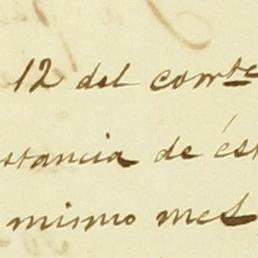 12 del corrte
stancia de est
mismo mes